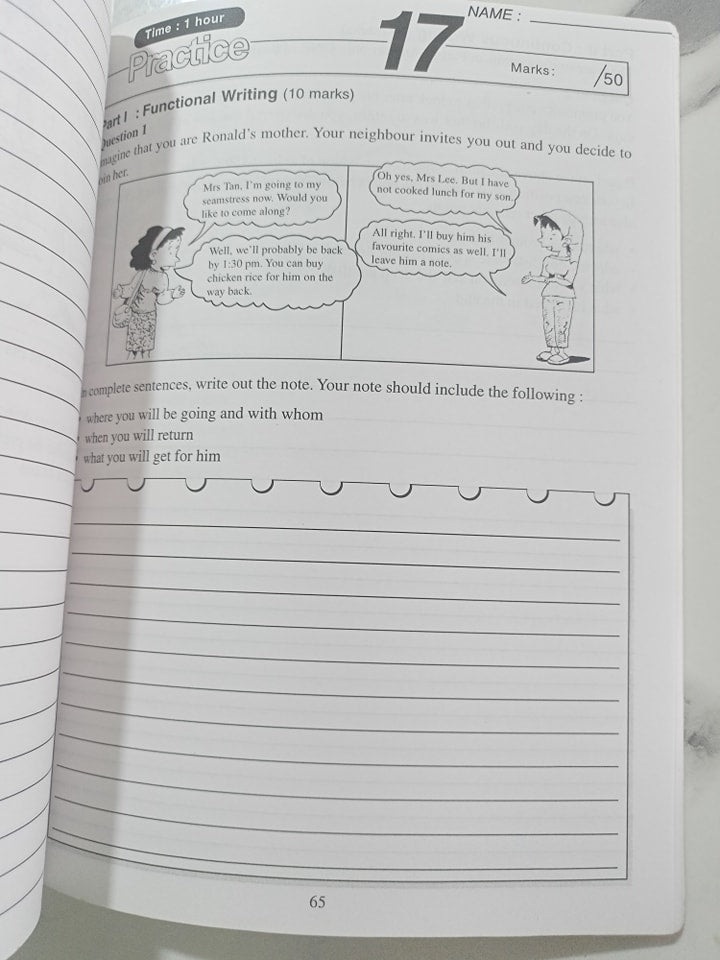 Time : 1 hour
Practice
17
NAME :
Marks : /50
Part I : Functional Writing (10 marks)
Question 1
magine that you are Ronald's mother. Your neighbour invites you out and you decide to
oin her.
Mrs Tan, I'm going to my
seamstress now. Would you
like to come along?
Oh yes, Mrs Lee. But I have
not cooked lunch for my son.
Well, we'll probably be back
by 1:30 pm. You can buy
chicken rice for him on the
way back.
All right. I'll buy him his
favourite comics as well. I'll
leave him a note.
n complete sentences, write out the note. Your note should include the following :
• where you will be going and with whom
• when you will return
• what you will get for him
65